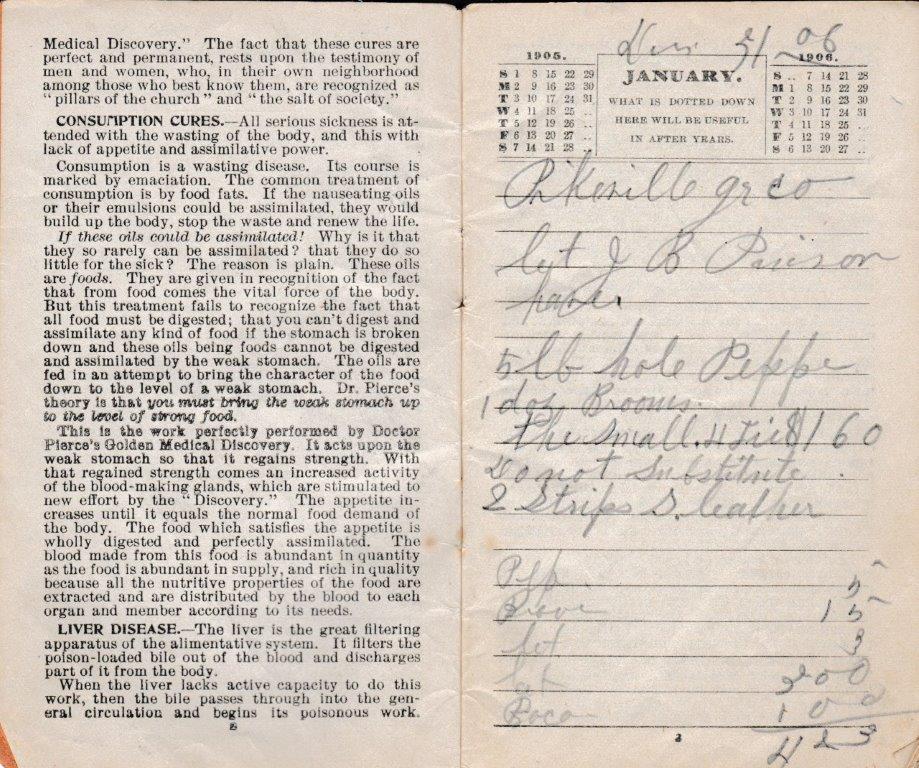 Medical Discovery." The fact that these cures are
perfect and permanent, rests upon the testimony of
men and women, who, in their own neighborhood
among those who best know them, are recognized as
"pillars of the church" and "the salt of society."
CONSUMPTION CURES.—All serious sickness is at-
tended with the wasting of the body, and this with
lack of appetite and assimilative power.
Consumption is a wasting disease. Its course is
marked by emaciation. The common treatment of
consumption is by food fats. If the nauseating oils
or their emulsions could be assimilated, they would
build up the body, stop the waste and renew the life.
If these oils could be assimilated! Why is it that
they so rarely can be assimilated? that they do so
little for the sick? The reason is plain. These oils
are foods. They are given in recognition of the fact
that from food comes the vital force of the body.
But this treatment fails to recognize the fact that
all food must be digested; that you can't digest and
assimilate any kind of food if the stomach is broken
down and these oils being foods cannot be digested
and assimilated by the weak stomach. The oils are
fed in an attempt to bring the character of the food
down to the level of a weak stomach. Dr. Pierce's
theory is that you must bring the weak stomach up
to the level of strong food.
This is the work perfectly performed by Doctor
Pierce's Golden Medical Discovery. It acts upon the
weak stomach so that it regains strength. With
that regained strength comes an increased activity
of the blood-making glands, which are stimulated to
new effort by the "Discovery." The appetite in-
creases until it equals the normal food demand of
the body. The food which satisfies the appetite is
wholly digested and perfectly assimilated. The
blood made from this food is abundant in quantity
as the food is abundant in supply, and rich in quality
because all the nutritive properties of the food are
extracted and are distributed by the blood to each
organ and member according to its needs.
LIVER DISEASE.—The liver is the great filtering
apparatus of the alimentative system. It filters the
poison-loaded bile out of the blood and discharges
part of it from the body.
When the liver lacks active capacity to do this
work, then the bile passes through into the gen-
eral circulation and begins its poisonous work.
2
31 06
1905.
S 1 8 15 22 29
M 2 9 16 23 30
T 3 10 17 24 31
W 4 11 18 25 ..
T 5 12 19 26 ..
F 6 13 20 27 ..
S 7 14 21 28 ..
JANUARY.
WHAT IS DOTTED DOWN
HERE WILL BE USEFUL
IN AFTER YEARS.
1906.
S .. 7 14 21 28
M 1 8 15 22 29
T 2 9 16 23 30
W 3 10 17 24 31
T 4 11 18 25 ..
F 5 12 19 26 ..
S 6 13 20 27 ..
Pikeville gr co
J B
5 lb hole Peppe
1 doz Brooms
The Small 4 Tie $1 60
Do not Substitute
2 Strips S. leather
5
15
3
200
100
423
3